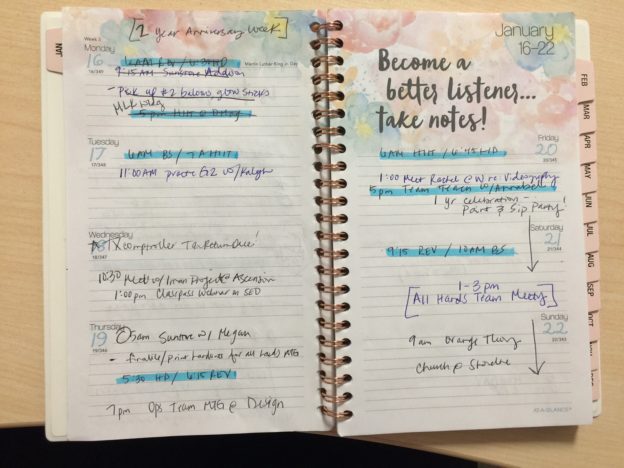 JAN
Week 3
[1 Year Anniversary Week]
Monday
Martin Luther King Jr. Day
16
16/349
9:15 AM Sunstone
- Pick up #2 balloons, glow sticks
MLK
5pm HIIT @
Tuesday
17
17/348
6AM BS / 7A HIIT
11:00AM practice w/ Kaleigh
Wednesday
18/347
TX comptroller Tax Return Due!
10:30 Meet w/ Iman Project @ Ascension
1:00pm Classpass Webinar on SEO
Thursday
19
19/346
Sunstone w/ Megan
- finalize/print handouts for all hands MTG
5:30 HD / 6:15 REV
7pm Ops Team MTG @ Design
January
16-22
Become a
better listener...
take notes!
Friday
20
20/345
6AM HIIT / 6:45 HD
1:00 Meet Rachel @ Videography
5pm Team Teach w/ Annabel
1 yr celebration -
Paint & Sip Party!
Saturday
21
21/344
9:15 REV / 10AM BS
1-3pm
[All Hands Team Meeting]
Sunday
22
22/343
9am Orange Theory
Church @ Shoreline
AT-A-GLANCE
FEB
MAR
APR
MAY
JUN
JUL
AUG
SEP
OCT
NOV
DEC